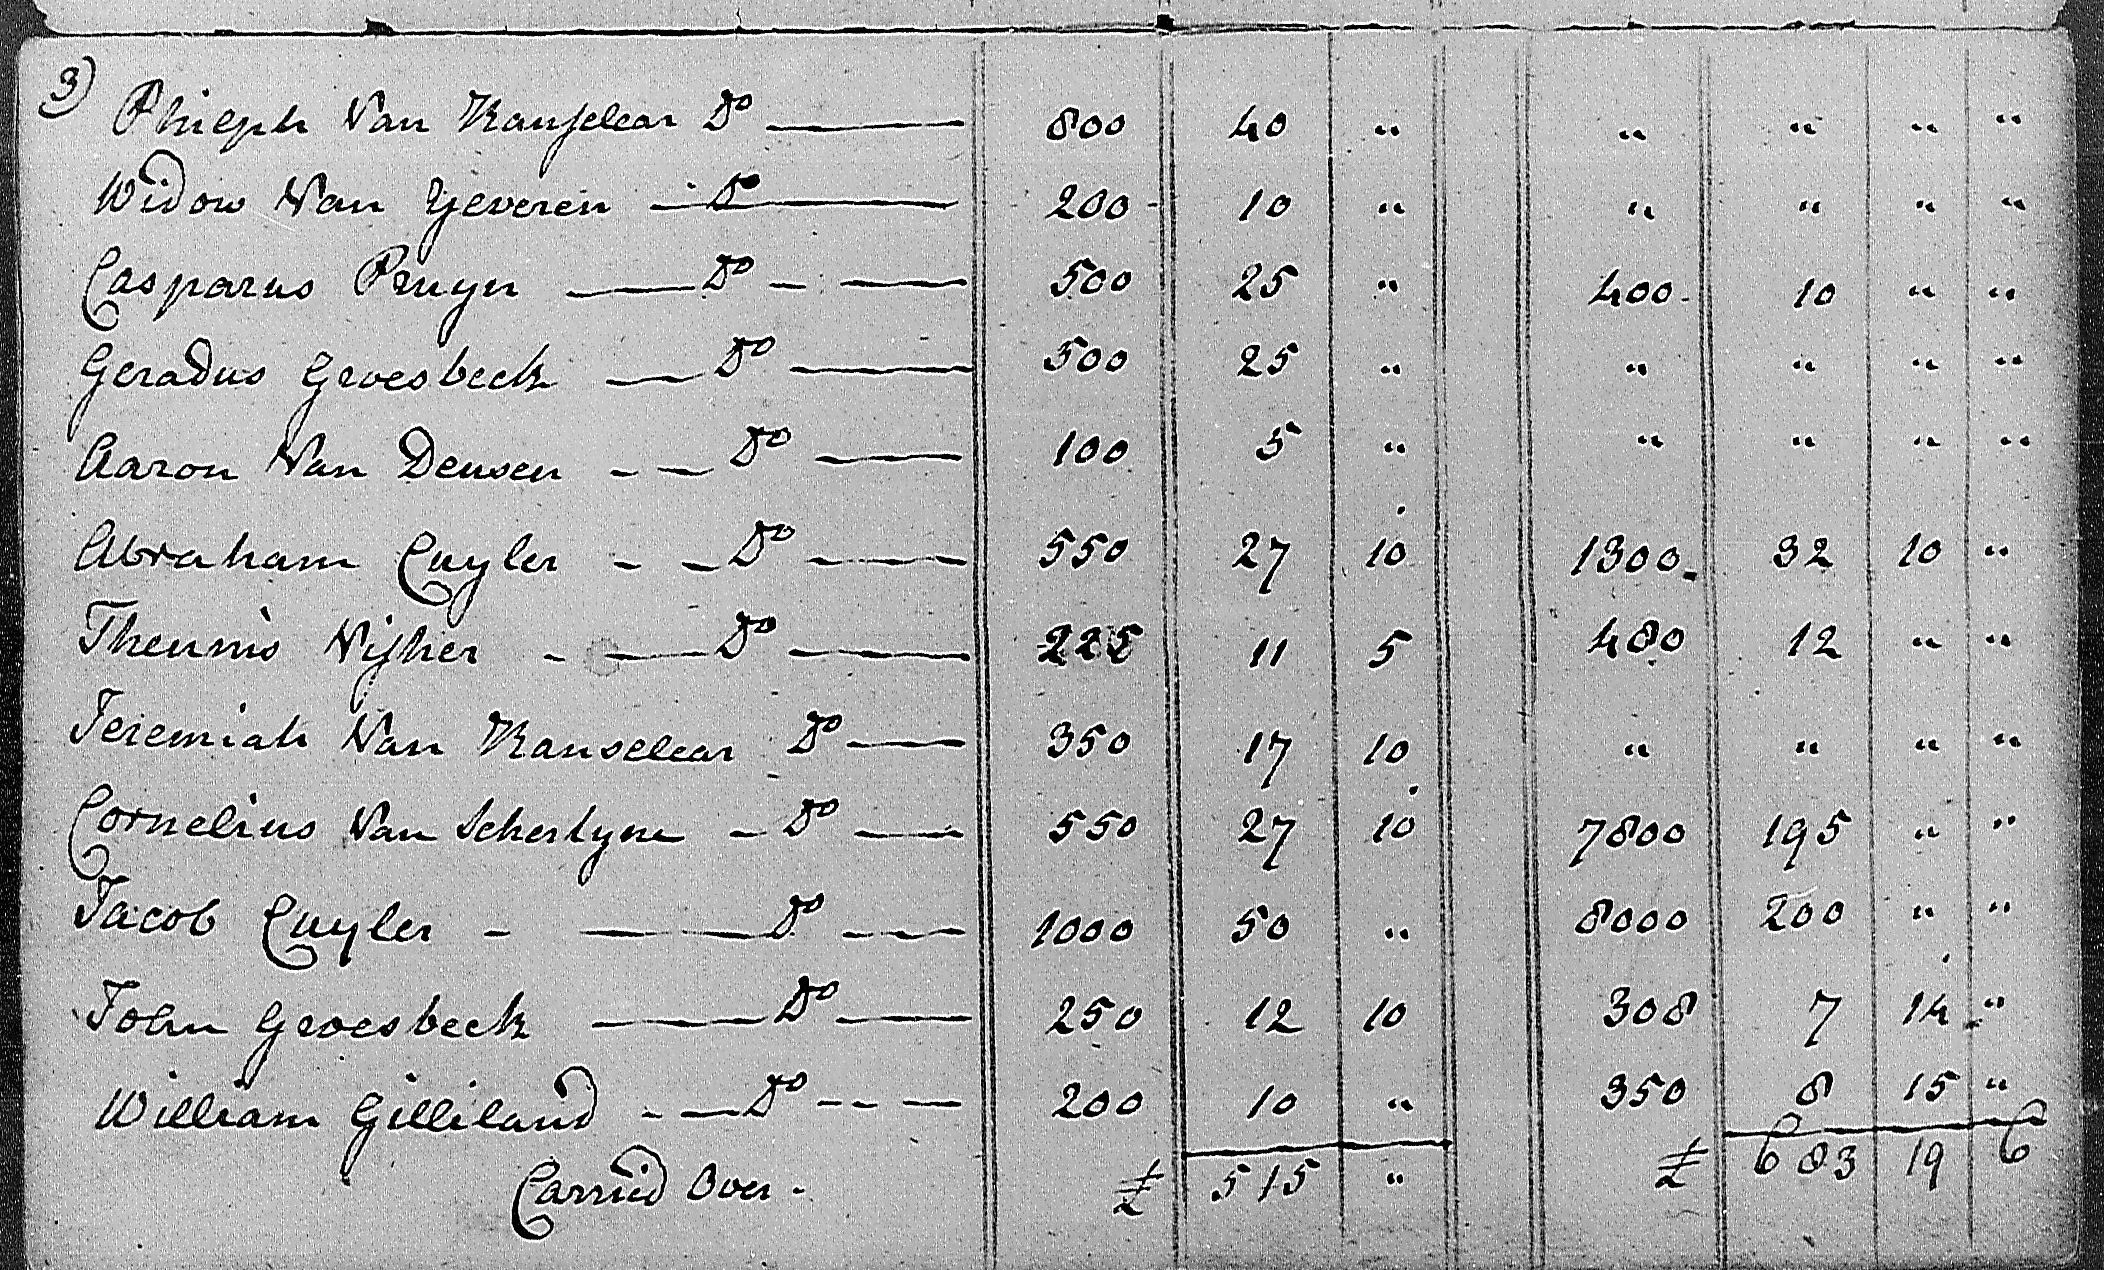 3) Philiph Van Ranselear Do 800 40 " " " " "
Widow Van Yeveren Do 200 10 " " " " "
Casparus Pruyn Do 500 25 " 400 10 " "
Geradus Groesbeek Do 500 25 " " " " "
Aaron Van Deusen Do 100 5 " " " " "
Abraham Cuyler Do 550 27 10 1300 32 10 "
Theunis Visher Do 225 11 5 480 12 " "
Jeremiah Van Ranselear Do 350 17 10 " " " "
Cornelius Van Scherlyne Do 550 27 10 7800 195 " "
Jacob Cuyler Do 1000 50 " 8000 200 " "
John Groesbeek Do 250 12 10 308 7 14 "
William Gilliland Do 200 10 " 350 8 15 "
Carried Over £ 515 " £ 683 19 6